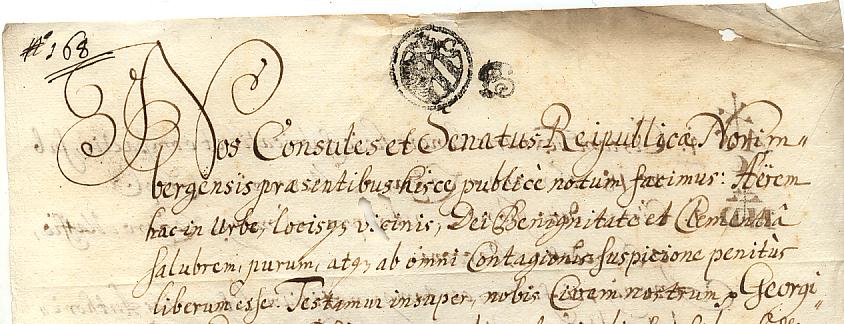 No 168
Nos Consules et Senatus Reipublicæ Norim=
bergensis præsentibus hisce publicè notum facimus: Aërem
hac in Urbe, locisqs vicinis, Dei Benignitate et Clementiâ
salubrem, purum, atq, ab omni Contagionis suspicione penitùs
liberum esse. Testamur insuper, nobis Civem nostrum, Georgi